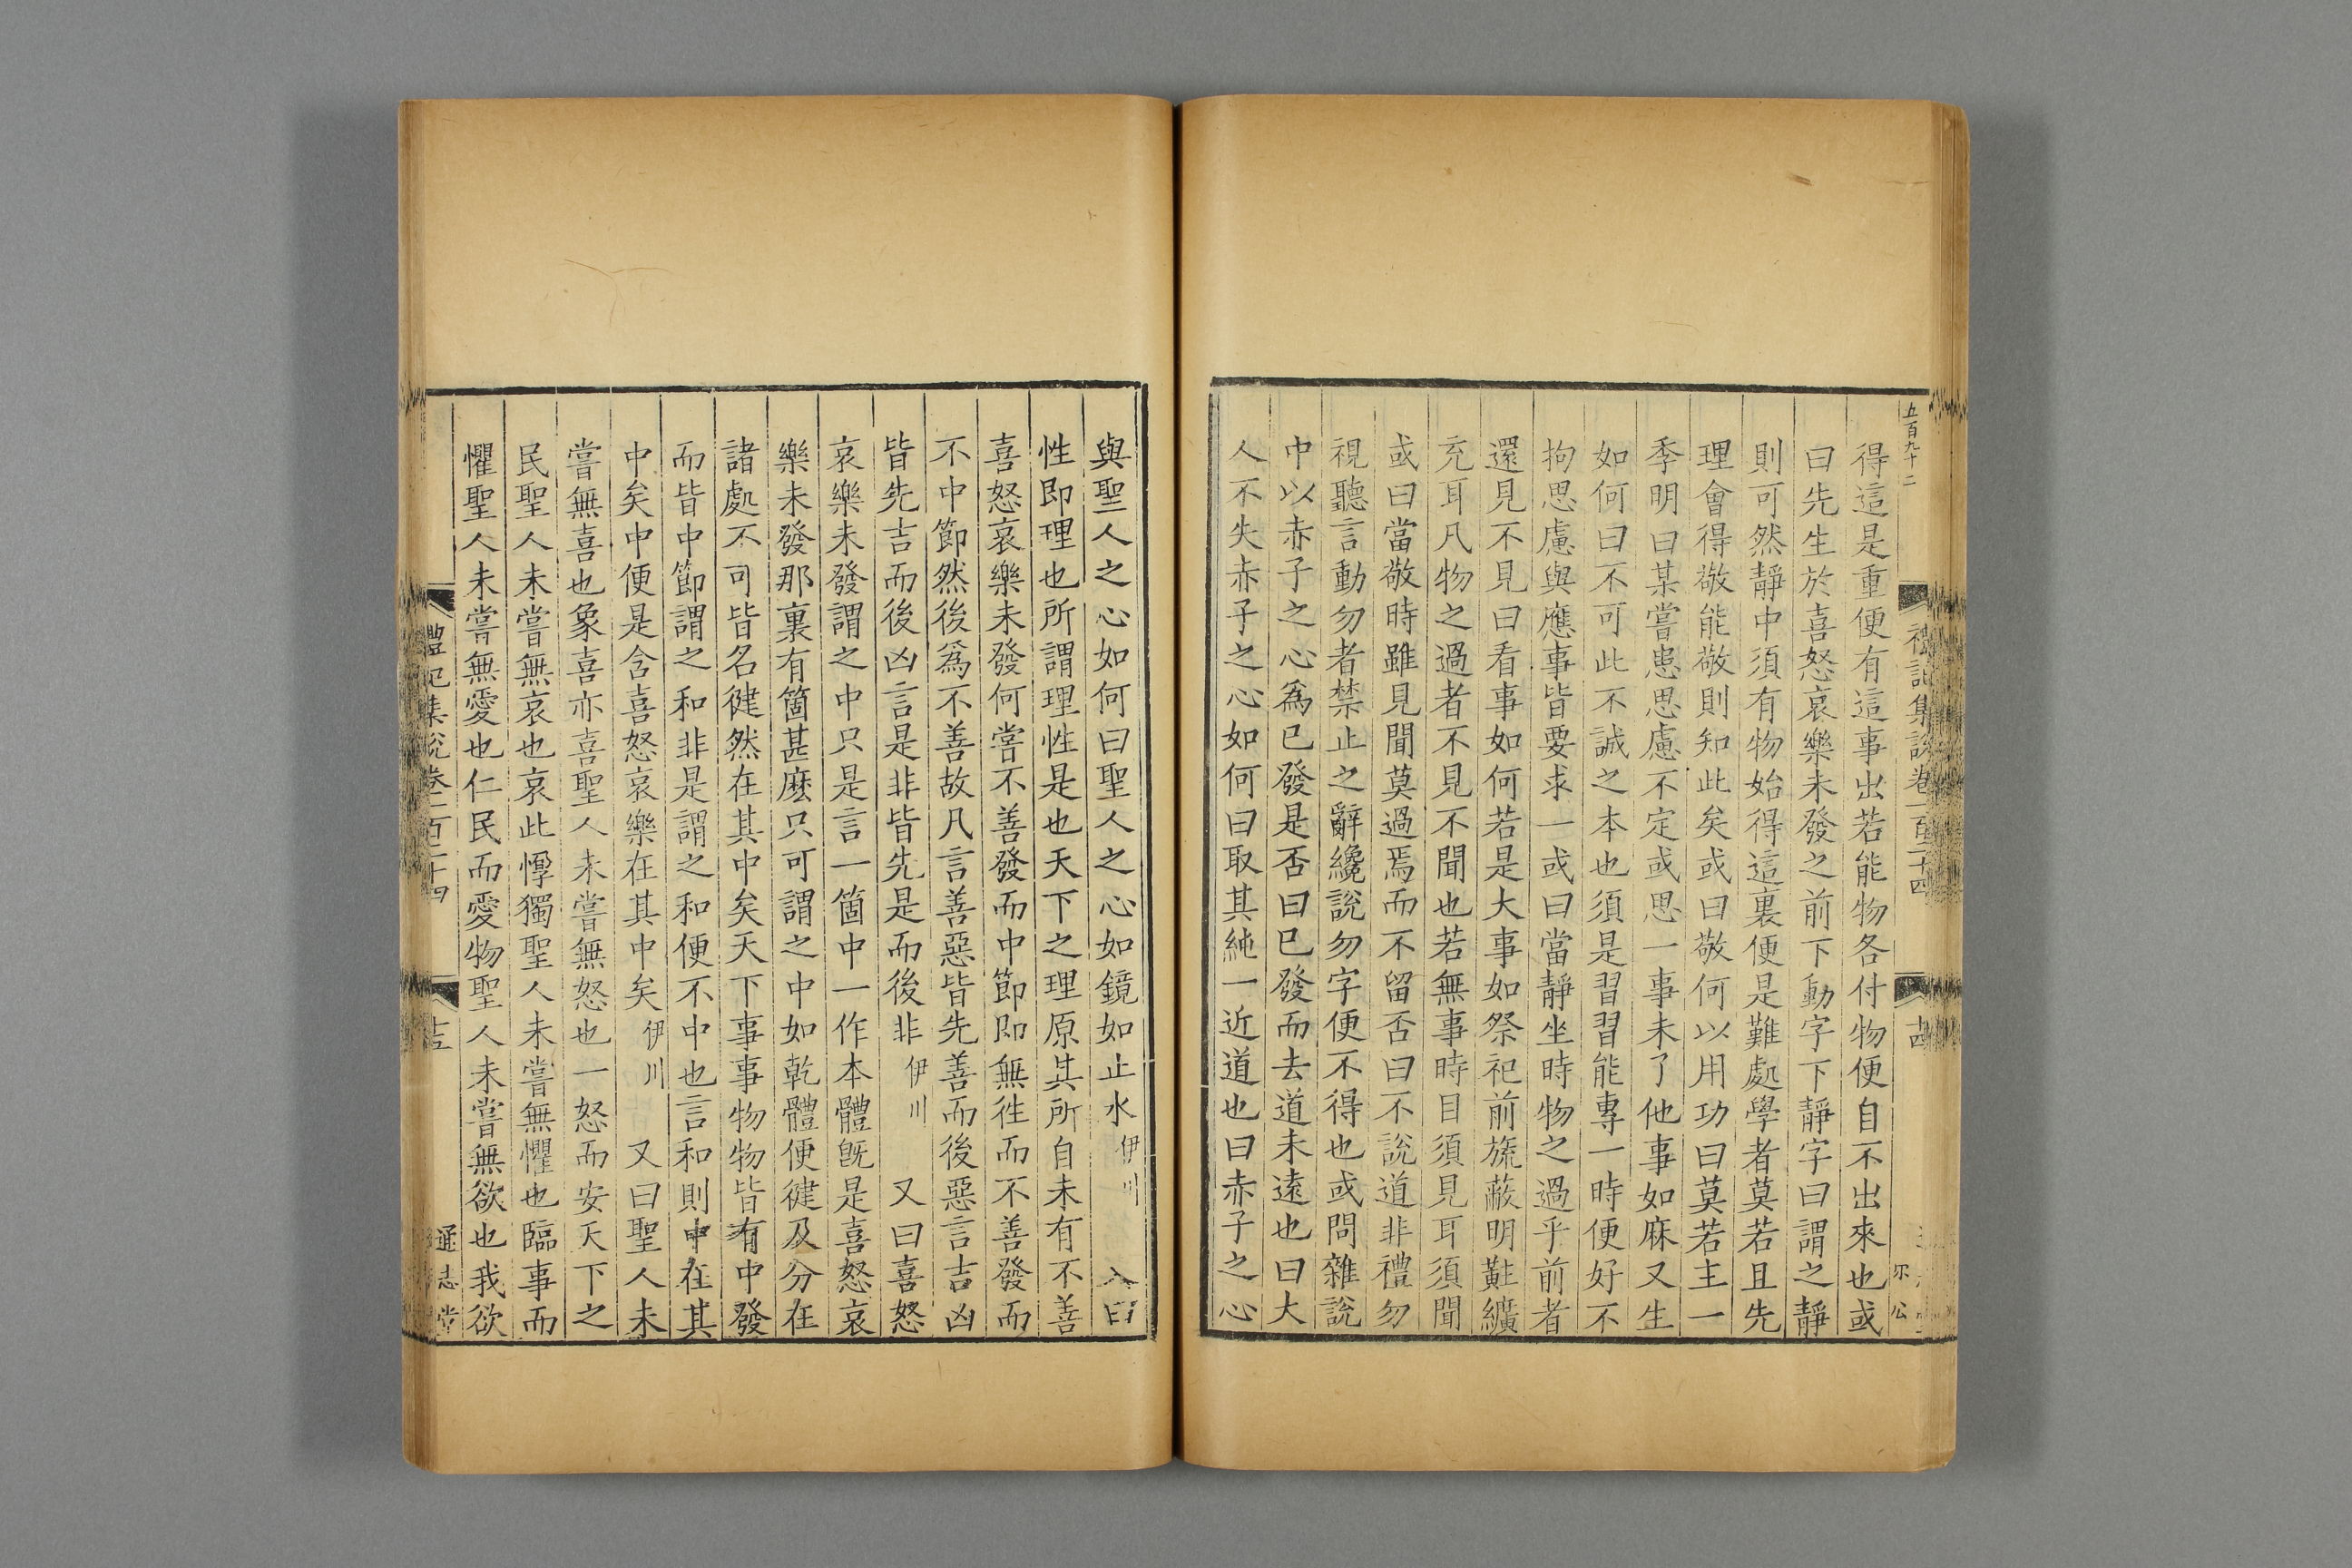 五百九十二
得這是重便有這事出若能物各付物便自不出來也或
曰先生於喜怒哀樂未發之前下動字下靜字曰謂之靜
則可然靜中須有物始得這裏便是難處學者莫若且先
理會得敬能敬則知此矣或曰敬何以用功曰莫若主一
季明曰某嘗患思慮不定或思一事未了他事如麻又生
如何曰不可此不誠之本也須是習習能專一時便好不
拘思慮與應事皆要求一或曰當靜坐時物之過乎前者
還見不見曰看事如何若是大事如祭祀前旒蔽明黈纊
充耳凡物之過者不見不聞也若無事時目須見耳須聞
或曰當敬時雖見聞莫過焉而不留否曰不說道非禮勿
視聽言動勿者禁止之辭纔說勿字便不得也或問雜說
中以赤子之心為已發是否曰已發而去道未遠也曰大
人不失赤子之心如何曰取其純一近道也曰赤子之心
與聖人之心如何曰聖人之心如鏡如止水伊川 又曰
性即理也所謂理性是也天下之理原其所自未有不善
喜怒哀樂未發何嘗不善發而中節即無徃而不善發而
不中節然後為不善故凡言善惡皆先善而後惡言吉凶
皆先吉而後凶言是非皆先是而後非伊川 又曰喜怒
哀樂未發謂之中只是言一箇中一作本體旣是喜怒哀
樂未發那裏有箇甚麽只可謂之中如乾體便健及分在
諸處不可皆名健然在其中矣天下事事物物皆有中發
而皆中節謂之和非是謂之和便不中也言和則中在其
中矣中便是含喜怒哀樂在其中矣伊川 又曰聖人未
嘗無喜也象喜亦喜聖人未嘗無怒也一怒而安天下之
民聖人未嘗無哀也哀此惸獨聖人未嘗無懼也臨事而
懼聖人未嘗無愛也仁民而愛物聖人未嘗無欲也我欲
禮記集說卷一百二十四
通志堂